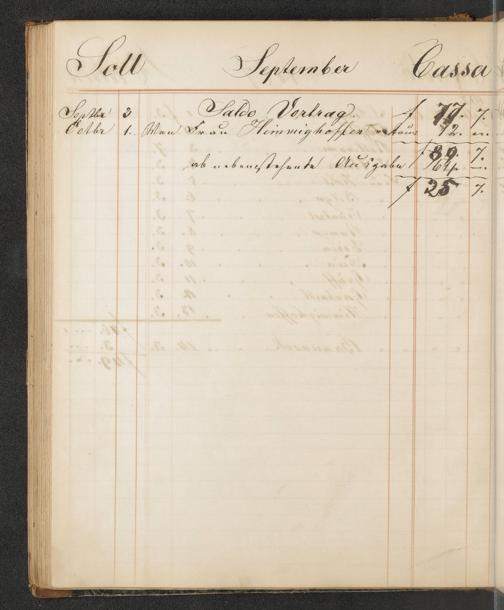 Soll September Cassa
Septbr 3 Saldo Vortrag. f 77. 7.
Octbr 1. Von Frau Himmighoffen 12. —.
f 89. 7.
ab nebenstehende Ausgabe 64. —.
f 25 7.